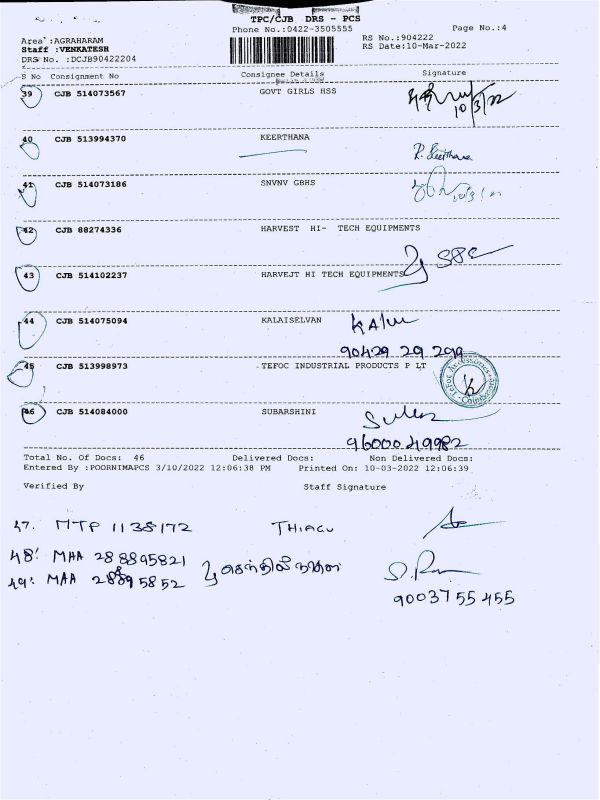 TPC/CJB DRS - PCS
Phone No.:0422-3505555
Page No.:4
Area :AGRAHARAM
RS No.:904222
Staff :VENKATESH
RS Date:10-Mar-2022
DRS No. :DCJB90422204
S No Consignment No Consignee Details Signature
39 CJB 514073567 GOVT GIRLS HSS
10/3/22
40 CJB 513994370 KEERTHANA
R. Keerthana
41 CJB 514073186 SNVNV GBHS
42 CJB 88274336 HARVEST HI- TECH EQUIPMENTS
43 CJB 514102237 HARVEJT HI TECH EQUIPMENTS
44 CJB 514075094 KALAISELVAN
90429 29 299
45 CJB 513998973 TEFOC INDUSTRIAL PRODUCTS P LT
46 CJB 514084000 SUBARSHINI
96000 49982
Total No. Of Docs: 46 Delivered Docs: Non Delivered Docs:
Entered By :POORNIMAPCS 3/10/2022 12:06:38 PM Printed On: 10-03-2022 12:06:39
Verified By Staff Signature
47. MTP 1138172 THIAGU
48. MAA 288895821
49. MAA 28895852
90037 55 455